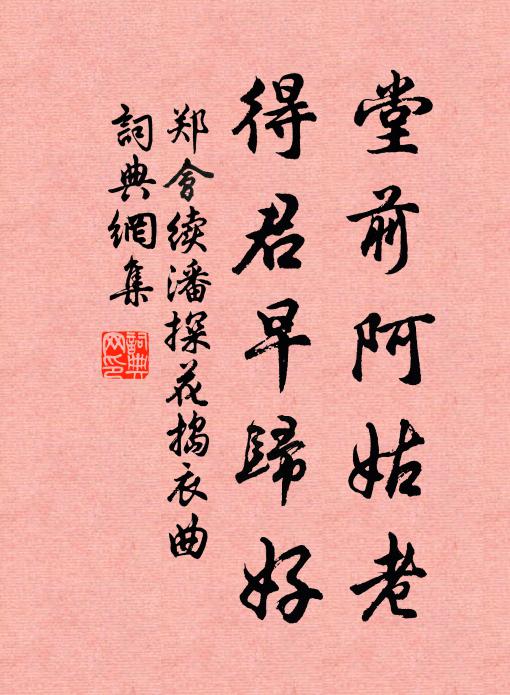 堂前阿姑老
得君早歸好
郑會续潘探花捣衣曲
詞典網集
詞典網印